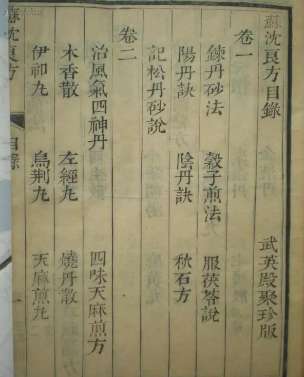 蘇沈良方目錄
武英殿聚珍版
卷一
鍊丹砂法 穀子煎法 服茯苓說
陽丹訣 陰丹訣 秋石方
記松丹砂說
卷二
治風氣四神丹 四味天麻煎方
木香散 左經丸 燒丹散
伊祁丸 烏荆丸 天麻煎丸
蘇沈良方 目錄 一